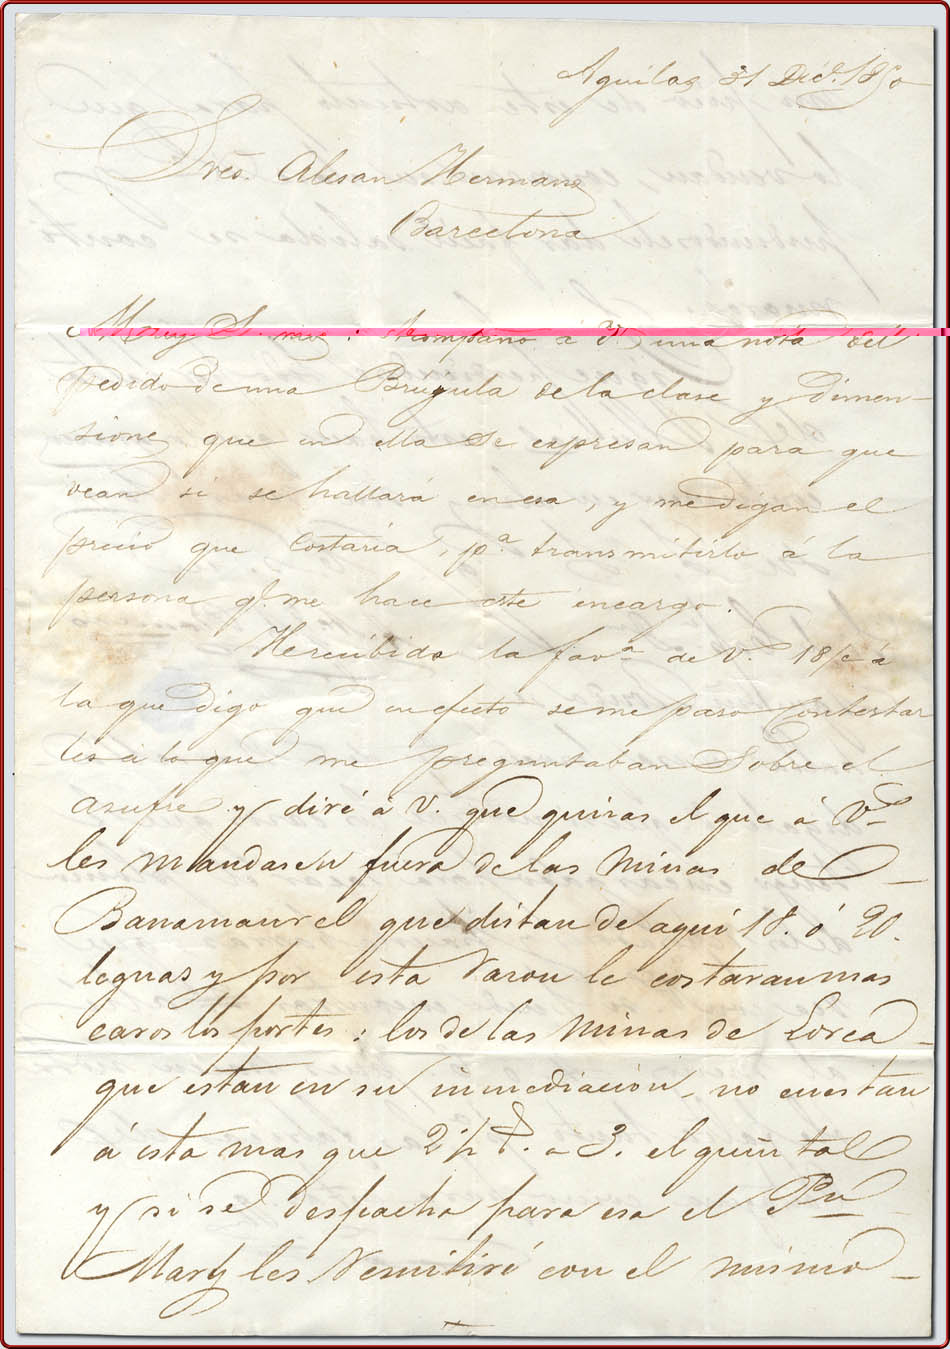 Aguilas 31 Dic.e 1850
Sres. Alesan Hermans
Barcelona
Muy S. mio: Acompaño á V. una nota del
pedido de una Brujula de la clase y dimen-
siones que en ella se expresan para que
vean si se hallará en esa, y me digan el
precio que Costaria, p.a transmitirlo á la
persona q.e me hace este encargo.
He recibido la fav.a de V. 18 á
la que digo que en efecto se me paso Contestar
les á lo que me preguntaban Sobre el
azufre y diré á V. que quizas el que á V.s
les mandasen fuera de las minas de
Banamaurel que distan de aqui 18. ó 20.
leguas y por esta razon le costaran mas
caros los portes; los de las minas de Lorca
que estan en su inmediacion, no cuestan
á esta mas que 2 1/2 á 3. el quintal
y si se despacha para esa el
Marty les remitiré con el mismo